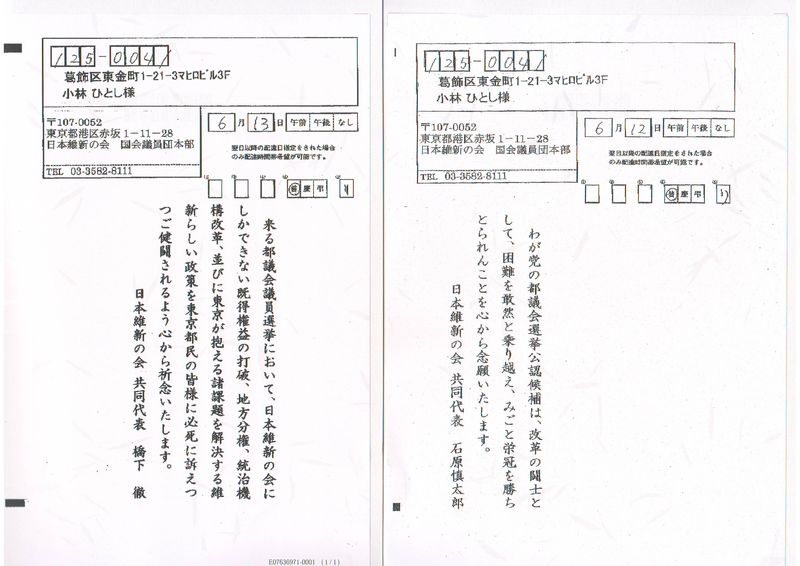 125-0041
葛飾区東金町1-21-3マヒロビル3F
小林 ひとし様
〒107-0052
東京都港区赤坂1-11-28
日本維新の会 国会議員団本部
TEL 03-3582-8111
6月13日 午前 午後 なし
翌日以降の配達日指定をされた場合
のみ配達時間帯希望が可能です。
慶 弔
来る都議会議員選挙において、日本維新の会に
しかできない既得権益の打破、地方分権、統治機
構改革、並びに東京が抱える諸課題を解決する維
新らしい政策を東京都民の皆様に必死に訴えつ
つご健闘されるよう心から祈念いたします。
日本維新の会 共同代表 橋下 徹
E07636971-0001 (1/1)
125-0041
葛飾区東金町1-21-3マヒロビル3F
小林 ひとし様
〒107-0052
東京都港区赤坂1-11-28
日本維新の会 国会議員団本部
TEL 03-3582-8111
6月12日 午前 午後 なし
翌日以降の配達日指定をされた場合
のみ配達時間帯希望が可能です。
慶 弔
わが党の都議会選挙公認候補は、改革の闘士と
して、困難を敢然と乗り越え、みごと栄冠を勝ち
とられんことを心から念願いたします。
日本維新の会 共同代表 石原慎太郎